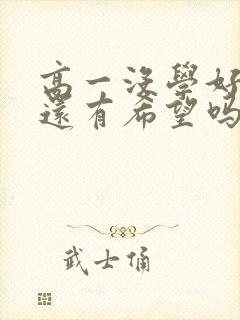 高一没學好
還有希望嗎
武士俑